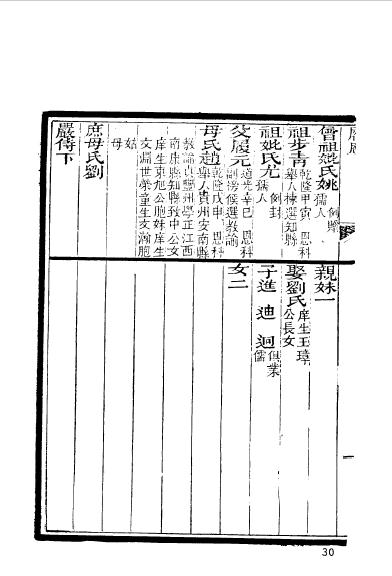 曾祖妣氏姚 例贈孺人
祖步青 乾隆甲寅 恩科舉人揀選知縣
祖妣氏尤 例封孺人
父履元 道光辛巳 恩科副榜候選教諭
母氏趙 乾隆戊申 恩科舉人貴州安南縣
教諭 州學正江西
南康縣知縣致中公女
庠生東旭公胞妹庠生
文淵世榮童生文瀚胞
姑母
庶母氏劉
嚴侍下
親妹一
娶劉氏 庠生玉璋公長女
子進 迪 迥 俱業儒
女二
30